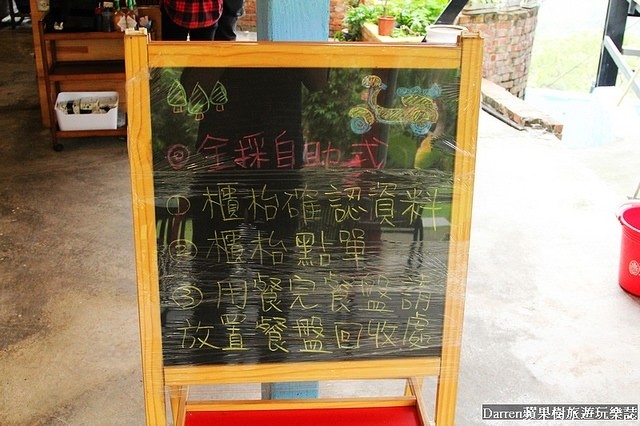 ◎全採自助式
①櫃枱確認資料
②櫃枱點單
③用餐完餐盤請
放置餐盤回收處
Darren蘋果樹旅遊玩樂誌